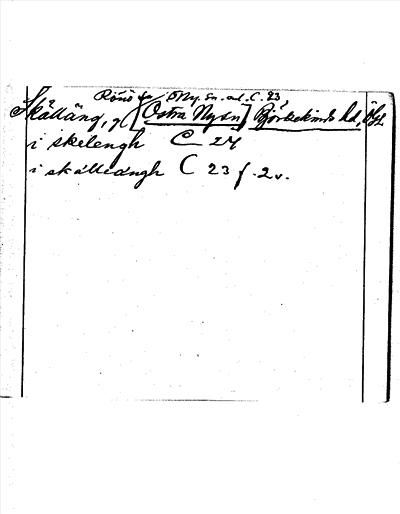 Rönö sn / Ö Ny. sn. al. C. 23
Skälläng, g( [Östra Ny sn] Björkekinds hd, Ög.
i skelengh C 24
i skälleängh C 23 f. 2v.